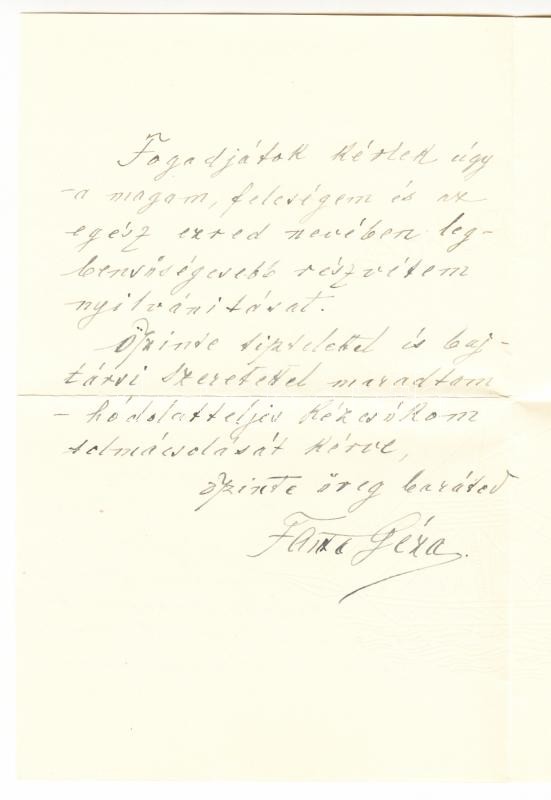 Fogadjátok kérlek úgy
-a magam, feleségem és az
egész ezred nevében leg-
bensőségesebb részvétem
nyilvánitását.
Őszinte tisztelettel és baj-
társi szeretettel maradtam
- hódolatteljes kézcsókom
tolmácsolását kérve,
őszinte öreg barátod
Géza.